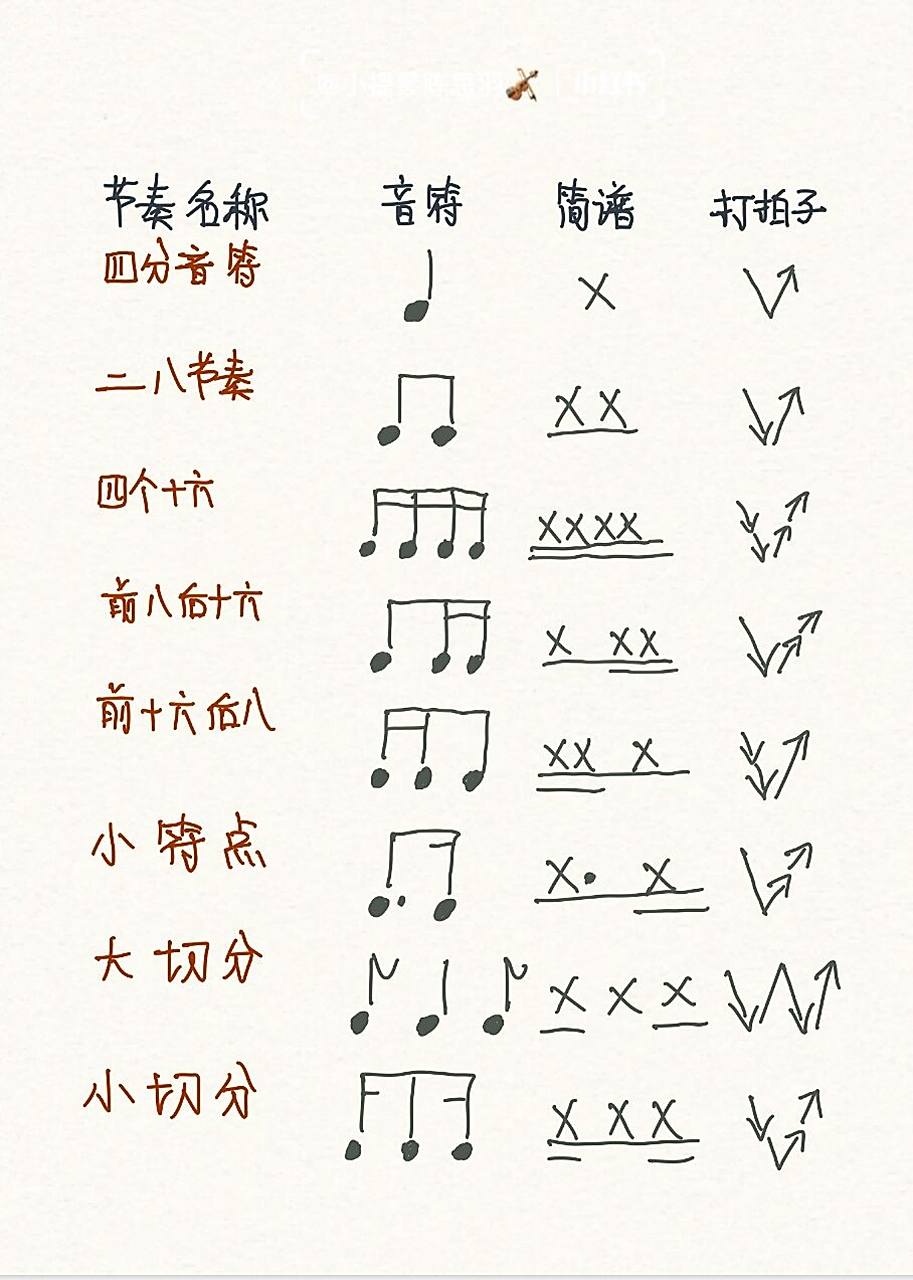 节奏名称 音符 简谱 打拍子
四分音符 X
二八节奏 X X
四个十六 XXXX
前八后十六 X XX
前十六后八 XX X
小符点 X· X
大切分 X X X
小切分 X X X